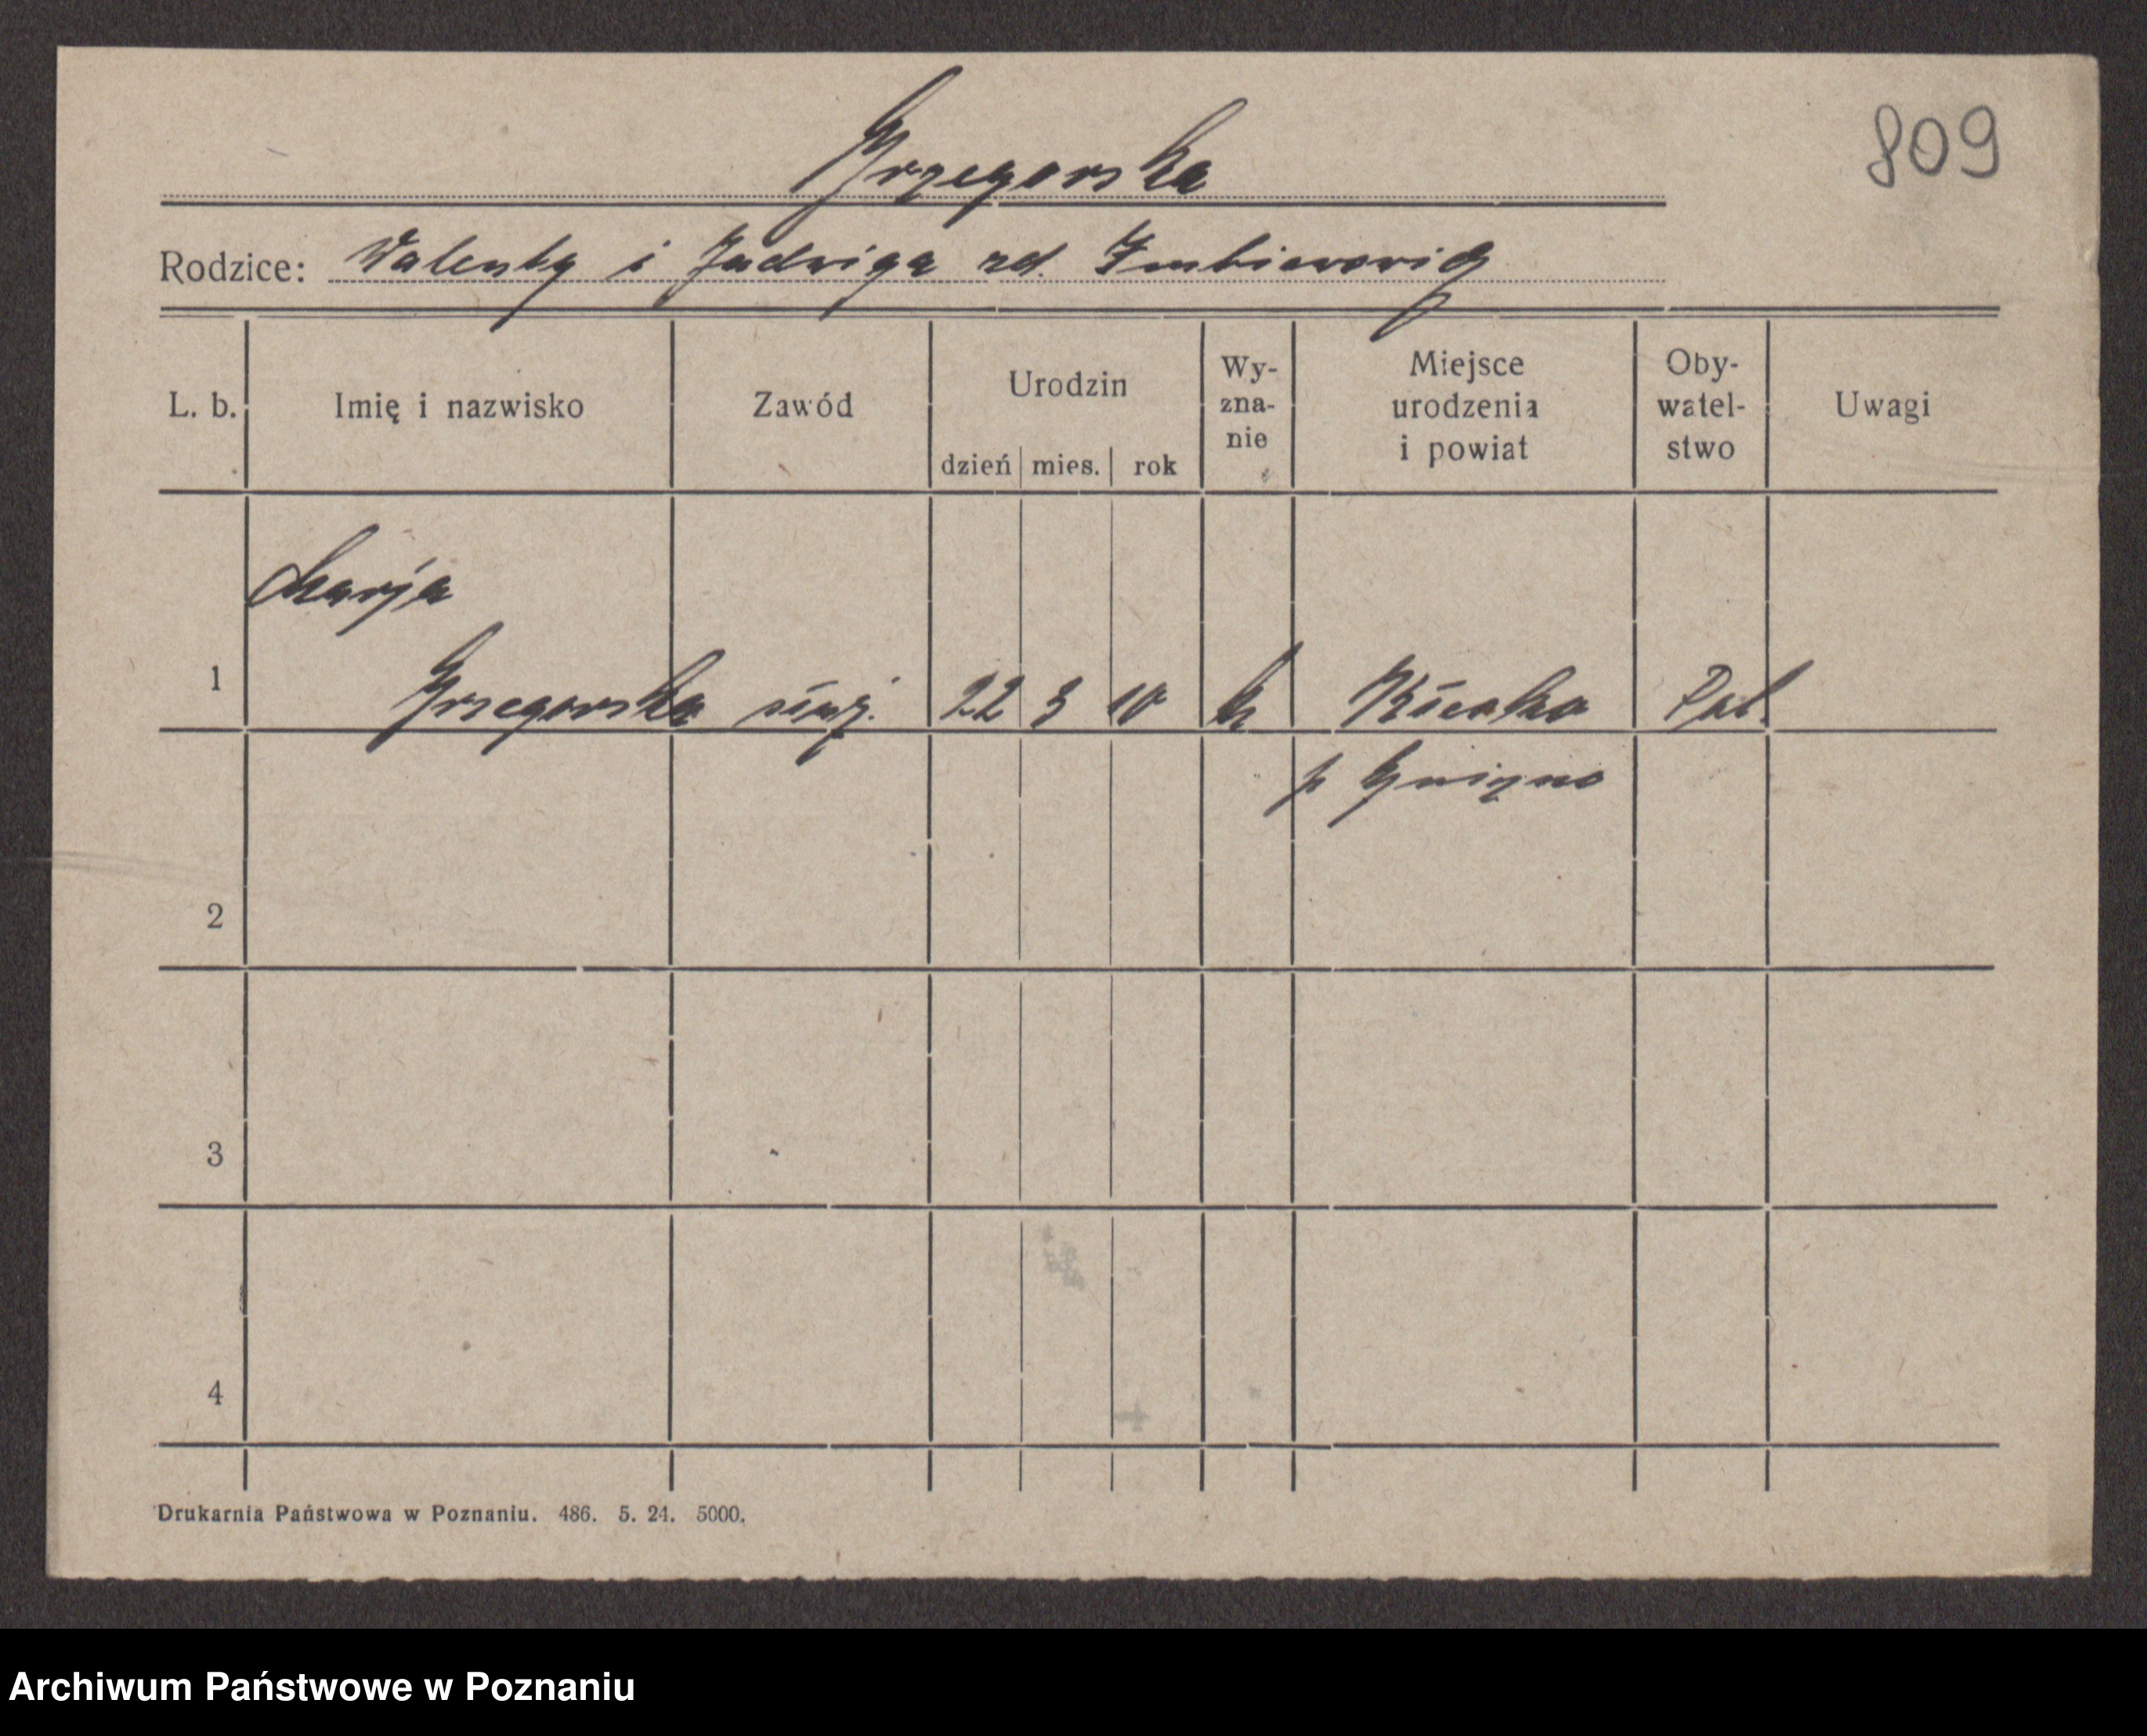 Grzegorska
809
Rodzice: Walenty i Jadwiga zd.
L. b. Imię i nazwisko Zawód Urodzin dzień mies. rok Wy-zna-nie Miejsce urodzenia i powiat Oby-watel-stwo Uwagi
Marja
1 Grzegorska służ. 22 3 10 k Kłecko Pol.
p Gniezno
2
3
4
Drukarnia Państwowa w Poznaniu. 486. 5. 24. 5000.
Archiwum Państwowe w Poznaniu